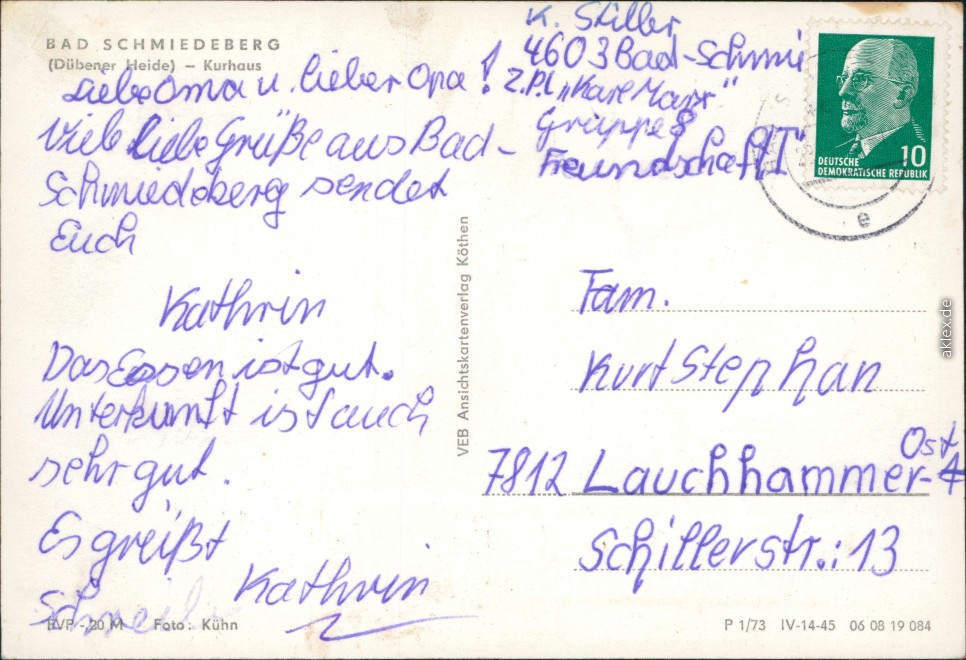 BAD SCHMIEDEBERG
(Dübener Heide) – Kurhaus
Liebe Oma u. lieber Opa!
Viele liebe Grüße aus Bad-
Schmiedeberg sendet
Euch
Kathrin
Das Essen ist gut.
Unterkunft ist auch
sehr gut.
Es greißt
Kathrin
EVP -,20 M Foto: Kühn
VEB Ansichtskartenverlag Köthen
K. Stiller
4603 Bad-Schmi
Z.Pl. „Karl Marx"
Gruppe 8
Freundschaft
DEUTSCHE
DEMOKRATISCHE REPUBLIK
10
e
Fam.
Kurt Stephan
Ost
7812 Lauchhammer-
Schillerstr.: 13
P 1/73 IV-14-45 06 08 19 084
aklex.de